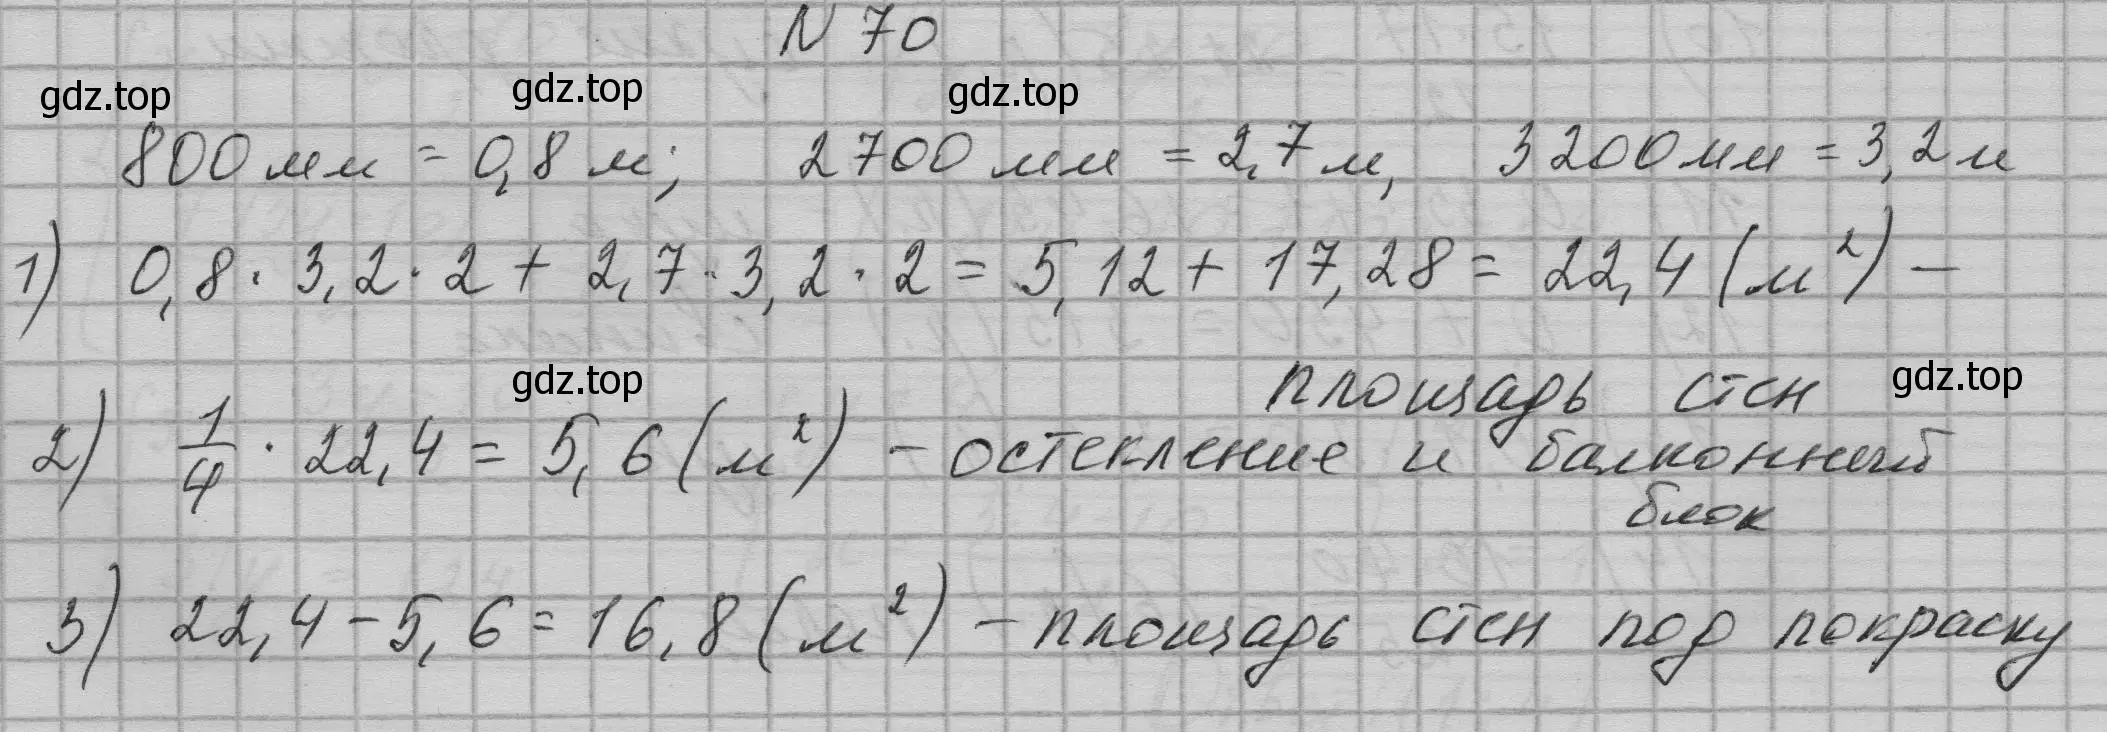 N 70
gdz.top gdz.top gdz.top
800 мм = 0,8 м; 2700 мм = 2,7 м, 3200 мм = 3,2 м
1) 0,8 · 3,2 · 2 + 2,7 · 3,2 · 2 = 5,12 + 17,28 = 22,4 (м²) –
площадь стен
gdz.top gdz.top
2) 1/4 · 22,4 = 5,6 (м²) – остекление и балконный
блок
3) 22,4 – 5,6 = 16,8 (м²) – площадь стен под покраску